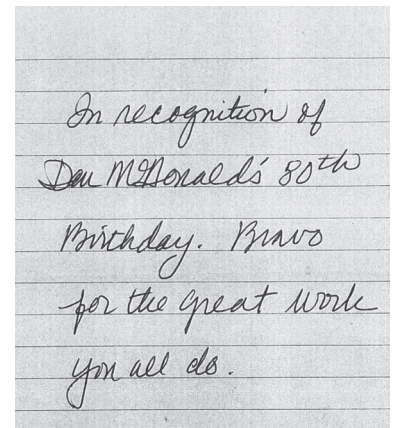 In recognition of
Dan McDonald's 80th
Birthday. Bravo
for the great work
you all do.